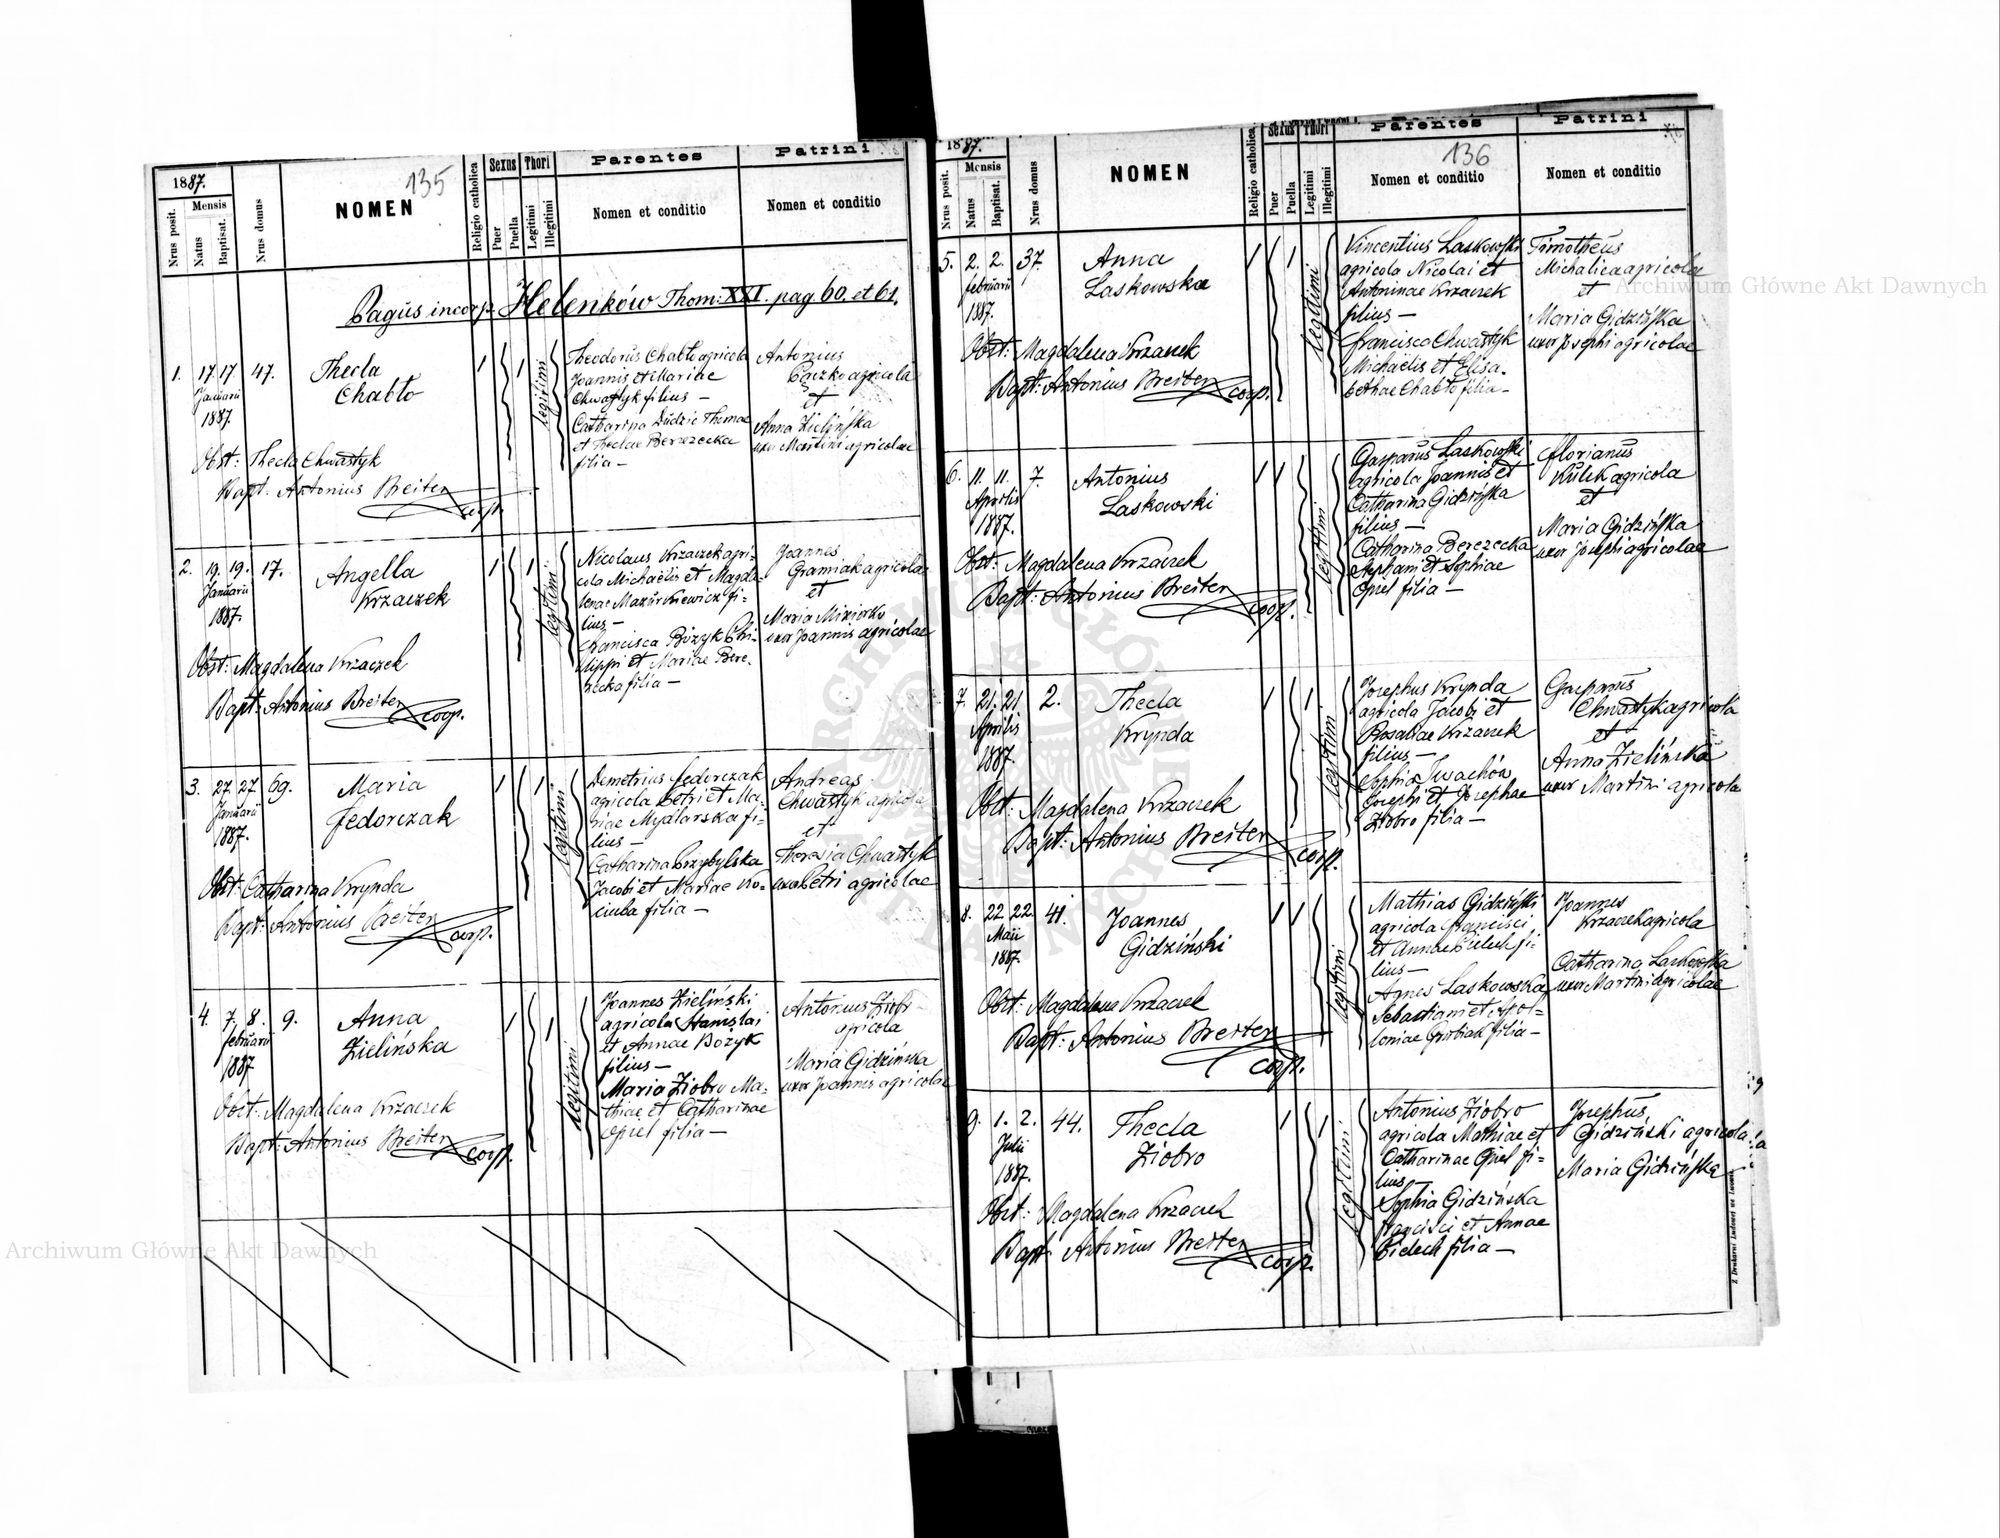 135
1887.
Nrus posit.
Mensis
Natus
Baptisat.
Nrus domus
NOMEN
Religio catholica
Sexus
Puer
Puella
Thori
Legitimi
Illegitimi
Parentes
Nomen et conditio
Patrini
Nomen et conditio
Pagus incorp. Helenków Thom: XXI. pag 60. et 61.
1. 17. 17 47. Thecla
Januarii
1887.
Chabło
1 1 legitimi
Theodorus Chabło agricola
Joannis et Mariae
Chwastyk filius —
Catharina Dudzic Thomae
et Theclae Berezecka
filia —
Antonius
Pączko agricola
et
Anna Zielińska
uxor Martini agricolae
Obst: Thecla Chwastyk
Bapt: Antonius Breiter
coop.
2. 19. 19. 17. Angella
Januarii
1887.
Krzaczek
1 1 legitimi
Nicolaus Krzaczek agri-
cola Michaëlis et Magda-
lenae Mazurkiewicz fi-
lius —
Francisca Bożyk Phi-
lippi et Mariae Bere-
zecka filia —
Joannes
Gramiak agricola
et
Maria Miziorko
uxor Joannis agricolae
Obst: Magdalena Krzaczek
Bapt: Antonius Breiter
coop.
3. 27. 27 69. Maria
Januarii
1887.
Fedorczak
1 1 legitimi
Demetrius Fedorczak
agricola Petri et Ma-
riae Mydlarska fi-
lius —
Catharina Przybylska
Jacobi et Mariae Ko-
ciuba filia —
Andreas
Chwastyk agricola
et
Theresia Chwastyk
uxor Petri agricolae
Obst: Catharina Krynda
Bapt: Antonius Breiter
coop.
4. 7. 8. 9. Anna
Februarii
1887
Zielińska
1 1 legitimi
Joannes Zieliński
agricola Stanislai
et Annae Bożyk
filius —
Maria Ziobro Ma-
thiae et Catharinae
Opiel filia —
Antonius
agricola
Maria Gidzińska
uxor Joannis agricolae
Obst: Magdalena Krzaczek
Bapt: Antonius Breiter
coop.
136
1887.
Nrus posit.
Mensis
Natus
Baptisat.
Nrus domus
NOMEN
Religio catholica
Sexus
Puer
Puella
Thori
Legitimi
Illegitimi
Parentes
Nomen et conditio
Patrini
Nomen et conditio
5. 2. 2. 37. Anna
Februarii
1887.
Laskowska
1 1 legitimi
Vincentius Laskowski
agricola Nicolai et
Antoninae Krzaczek
filius —
Francisca Chwastyk
Michaëlis et Elisa-
bethae Chabło filia —
Timotheus
Michalica agricola
et
Maria Gidzińska
uxor Josephi agricolae
Obst: Magdalena Krzaczek
Bapt: Antonius Breiter
coop.
6. 11. 11. 7. Antonius
Aprilis
1887.
Laskowski
1 1 legitimi
Gasparus Laskowski
agricola Joannis et
Catharina Gidzińska
filius —
Catharina Berezecka
Stephani et Sophiae
Opiel filia —
Florianus
Kulik agricola
et
Maria Gidzińska
uxor Josephi agricolae
Obst: Magdalena Krzaczek
Bapt: Antonius Breiter
coop.
7. 21. 21 2. Thecla
Aprilis
1887.
Krynda
1 1. legitimi
Josephus Krynda
agricola Jacobi et
Rosaliae Krzaczek
filius —
Sophia Iwachów
Josephi et Josephae
Ziobro filia —
Gasparus
Chwastyk agricola
et
Anna Zielińska
uxor Martini agricola
Obst: Magdalena Krzaczek
Bapt: Antonius Breiter
coop.
8. 22. 22. 41. Joannes
Maii
1887.
Gidziński
1 1 legitimi
Mathias Gidziński
agricola Francisci
et Annae Cielech fi-
lius —
Agnes Laskowska
Sebastiani et Apol-
loniae Grubiak filia —
Joannes
Krzaczek agricola
Catharina Laskowska
uxor Martini agricolae
Obst: Magdalena Krzaczek
Bapt: Antonius Breiter
coop.
9. 1. 2. 44. Thecla
Julii
1887.
Ziobro
1 1 legitimi
Antonius Ziobro
agricola Mathiae et
Catharinae Opiel fi-
lius —
Sophia Gidzińska
Francisci et Annae
Cielech filia —
Josephus
Gidziński agricola
Maria Gidzińska
Obst: Magdalena Krzaczek
Bapt: Antonius Breiter
coop.
Z Drukarni Ludowej we Lwowie.
Archiwum Główne Akt Dawnych
Archiwum Główne Akt Dawnych
ARCHIWUM GŁÓWNE AKT DAWNYCH